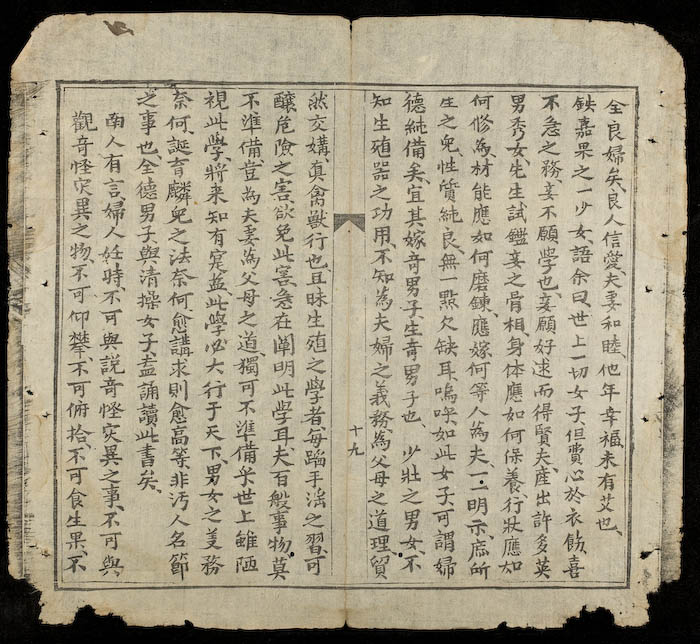 全良婦矣、良人信愛、夫妻和睦、他年幸福、未有艾也、
鉄嘉果之一少女、語余曰、世上一切女子、但費心於衣飾、喜
不急之務、妾不願學也、妾願好逑而得賢夫、產出許多英
男秀女、先生試鑑妾之骨相、身体應如何保養、行狀應如
何修為、材能應如何磨鍊、應嫁何等人為夫、一一明示、庶所
生之兒、性質純良無一點欠缺耳、嗚呼、如此女子、可謂婦
德純備矣、宜其嫁奇男子、生奇男子也、少壯之男女、不
知生殖器之功用、不知為夫婦之義務、為父母之道理、貿
十九
然交媾、真禽獸行也、且昧生殖之學者、每蹈手淫之習、可
釀危險之害、欲免此害、急在闡明此學耳、夫百般事物、莫
不準備、豈為夫妻為父母之道、獨可不準備乎、世上雖陋
視此學、將來知有寔益、此學必大行于天下、男女之義務
奈何、誕育麟兒之法奈何、愈講求則愈高等、非污人名節
之事也、全德男子與清操女子、盍誦讀此書矣、
南人有言、婦人妊時、不可與說奇怪災異之事、不可與
觀奇怪災異之物、不可仰攀、不可俯拾、不可食生果、不